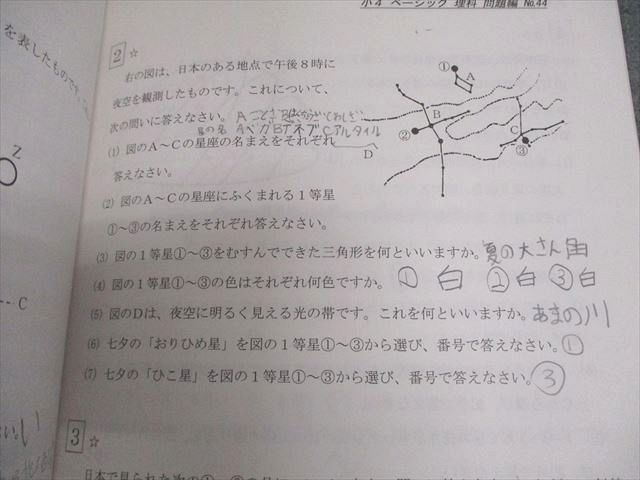 小4 ベーシック 理科 問題編 No.44
を表したものです。
2 ☆
右の図は、日本のある地点で午後8時に
夜空を観測したものです。これについて、
次の問いに答えなさい。Aこと座B
星の名 AベガBデネブCアルタイル
(1) 図のA～Cの星座の名まえをそれぞれ
答えなさい。
(2) 図のA～Cの星座にふくまれる1等星
①～③の名まえをそれぞれ答えなさい。
① A
B
②
C
③
D
(3) 図の1等星①～③をむすんでできた三角形を何といいますか。夏の大さん角
(4) 図の1等星①～③の色はそれぞれ何色ですか。 ①白 ②白 ③白
(5) 図のDは、夜空に明るく見える光の帯です。これを何といいますか。あまの川
(6) 七夕の「おりひめ星」を図の1等星①～③から選び、番号で答えなさい。①
(7) 七夕の「ひこ星」を図の1等星①～③から選び、番号で答えなさい。③
Z
C
3 ☆